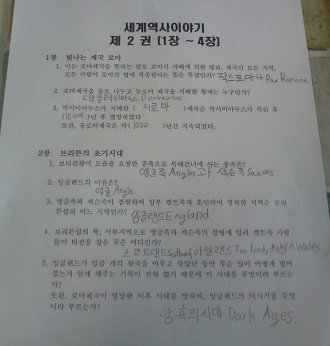 세계역사이야기
제 2 권 (1장 ~ 4장)
1장 빛나는 제국 로마
1. 이는 로마제국을 뜻하는 말로 로마의 지배에 의한 평화, 제국의 모든 지역,
모든 사람이 로마의 법에 복종한다는 뜻은 무엇인가? 팍스로마나 Pax Romana
2. 로마제국을 둘로 나누고 동로마 제국을 지배한 황제는 누구인가?
디오클레티아누스 Diocletianus
3. 막시미아누스가 지배한 ( 서로마 )제국은 막시미아누스가 즉위 후
( 180여 )년 후 멸망하였다
또한, 동로마제국은 약( 1000 )년간 지속되었다.
2장 브리튼의 초기시대
1. 보티건왕이 도움을 요청한 종족으로 북해건너에 사는 종족은?
앵글족 Angles과 색슨족 Saxons
2. 잉글랜드의 어원은?
앵글 Angle
3. 앵글족과 색슨족이 점령하여 일부 켈트족과 혼인하여 정착한 지역은 브리
튼섬의 어느 지역인가? 잉글랜드England
4. 브리튼섬의 북, 서부지역으로 앵글족과 색슨족의 점령에 밀려 켈트족 사람
들이 터전을 잡은 곳은 어디인가?
스코트랜드 아일랜드 Ireland, 웨일스Wales
5. 잉글랜드가 일곱 개의 왕국을 이루고 살았던 동안 무슨 일이 어떻게 벌어
졌는지 알게 해주는 기록이 전혀 없기 때문에 이 시대를 무엇이라 부르는
가?
또한, 로마제국이 멸망한 이후 시대를 말하며, 잉글랜드의 이시기를 무엇
이라 부르는가?
암흑의시대 Dark Ages.